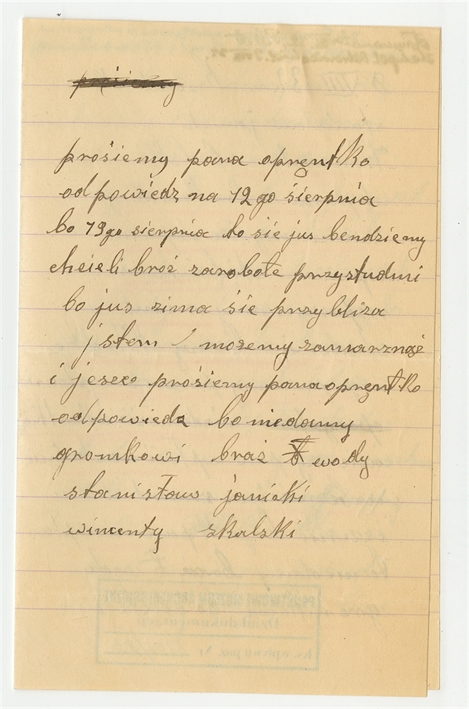 prosiemy
prośiemy pana oprentko
odpowiedz na 12 go śierpnia
bo 19 go sierpnia to sie jus bendziemy
chcieli broż zarobote przystudni
bo jus zima śie przybliża
jstem / możemy zamarznąż
i jesec prośiemy pana oprentko
odpowiedz bo niedamy
gromkowi braż wody
stanisław janicki
wincenty skalski